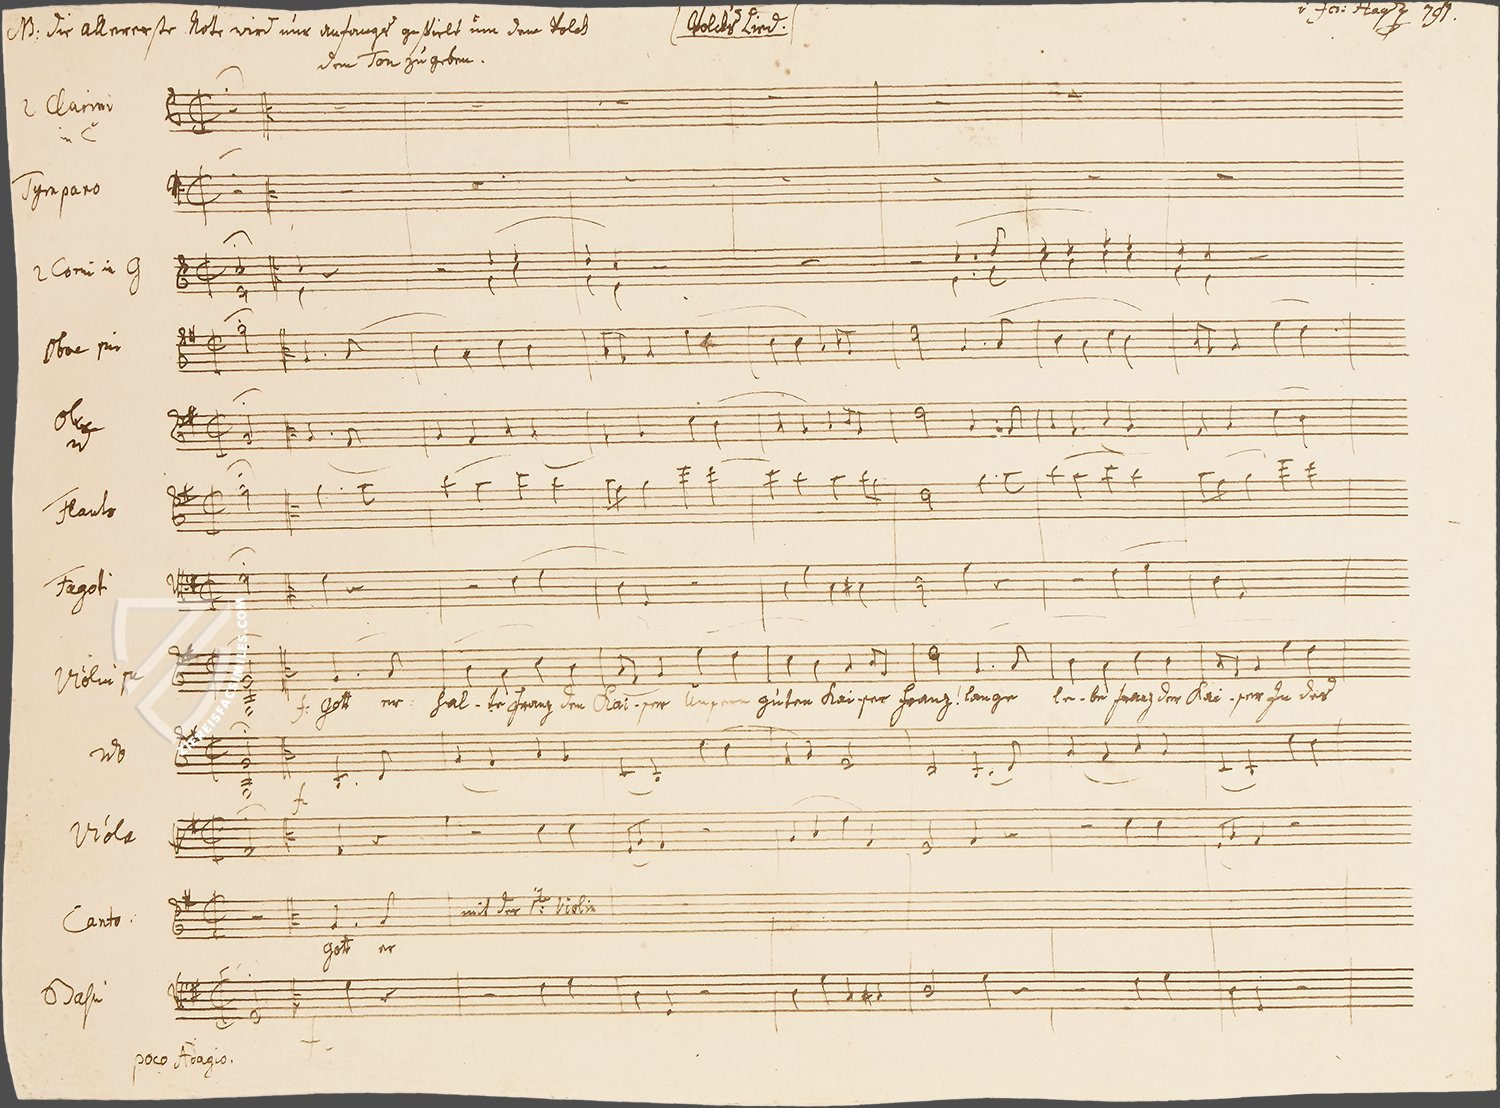 NB: die allererste Note wird nur anfangs gespielt um dem Volck
den Ton zu geben.
Volck's Lied.
Jos: Haydn 797.
2 Clarini
in C
Tympano
2 Corni in G
Oboe
Oboe
Flauto
Fagoti
Violin
f. gott er: hal-te Franz den Kai-ser Unsern guten Kai-ser Franz! lange le-be Franz der Kai-ser In des
2do
f.
Viola
Canto:
mit der Violin
gott er
Bassi
poco Adagio.